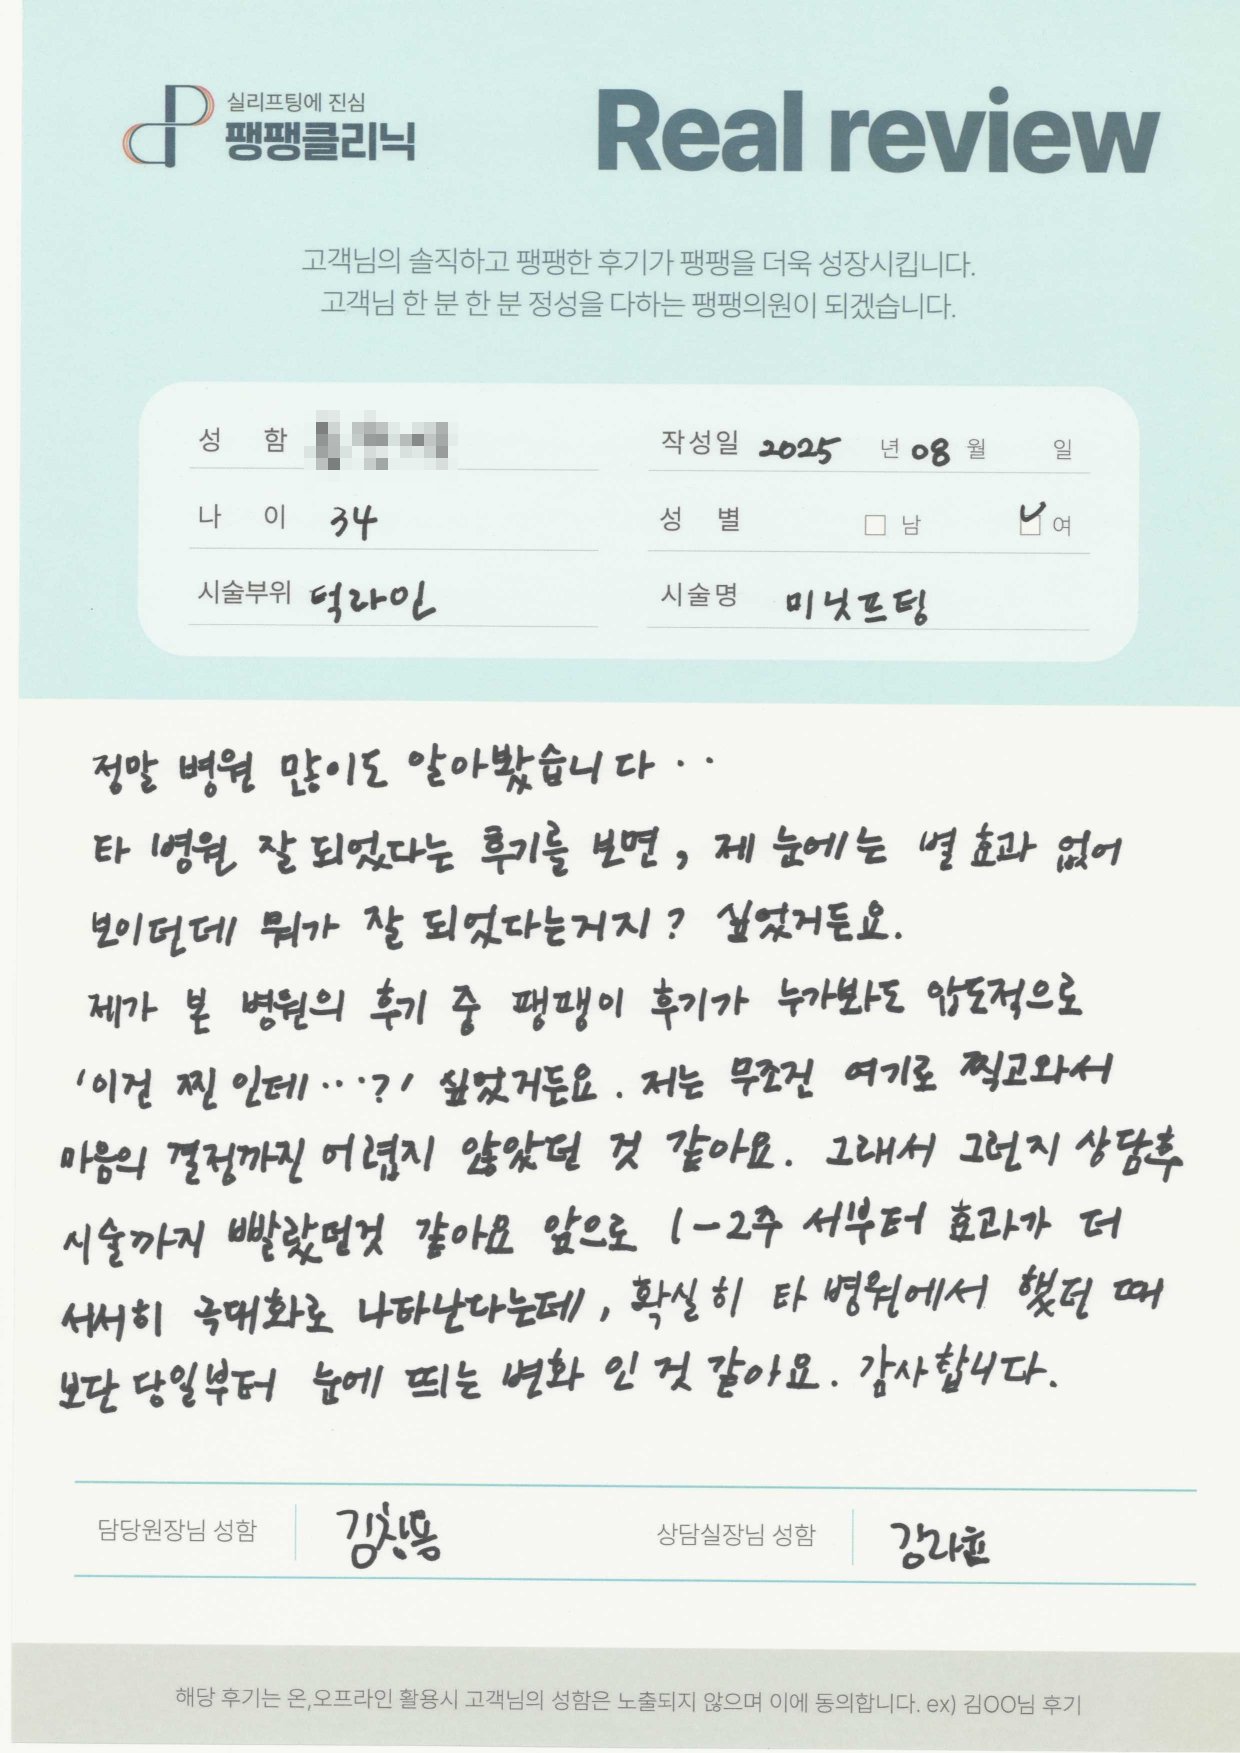 실리프팅에 진심
팽팽클리닉
Real review
고객님의 솔직하고 팽팽한 후기가 팽팽을 더욱 성장시킵니다.
고객님 한 분 한 분 정성을 다하는 팽팽의원이 되겠습니다.
성 함 작성일 2025 년 08 월 일
나 이 34 성 별 남 여
시술부위 턱라인 시술명 미닛프팅
정말 병원 많이도 알아봤습니다..
타 병원 잘 되었다는 후기를 보면, 제 눈에는 별 효과 없어
보이던데 뭐가 잘 되었다는거지? 싶었거든요.
제가 본 병원의 후기 중 팽팽이 후기가 누가봐도 압도적으로
'이건 찐 인데...?' 싶었거든요. 저는 무조건 여기로 찍고와서
마음의 결정까진 어렵지 않았던 것 같아요. 그래서 그런지 상담후
시술까지 빨랐던것 같아요 앞으로 1-2주 서부터 효과가 더
서서히 극대화로 나타난다는데, 확실히 타 병원에서 했던 때
보단 당일부터 눈에 띄는 변화 인 것 같아요. 감사합니다.
담당원장님 성함 김창용 상담실장님 성함 강라윤
해당 후기는 온,오프라인 활용시 고객님의 성함은 노출되지 않으며 이에 동의합니다. ex) 김OO님 후기